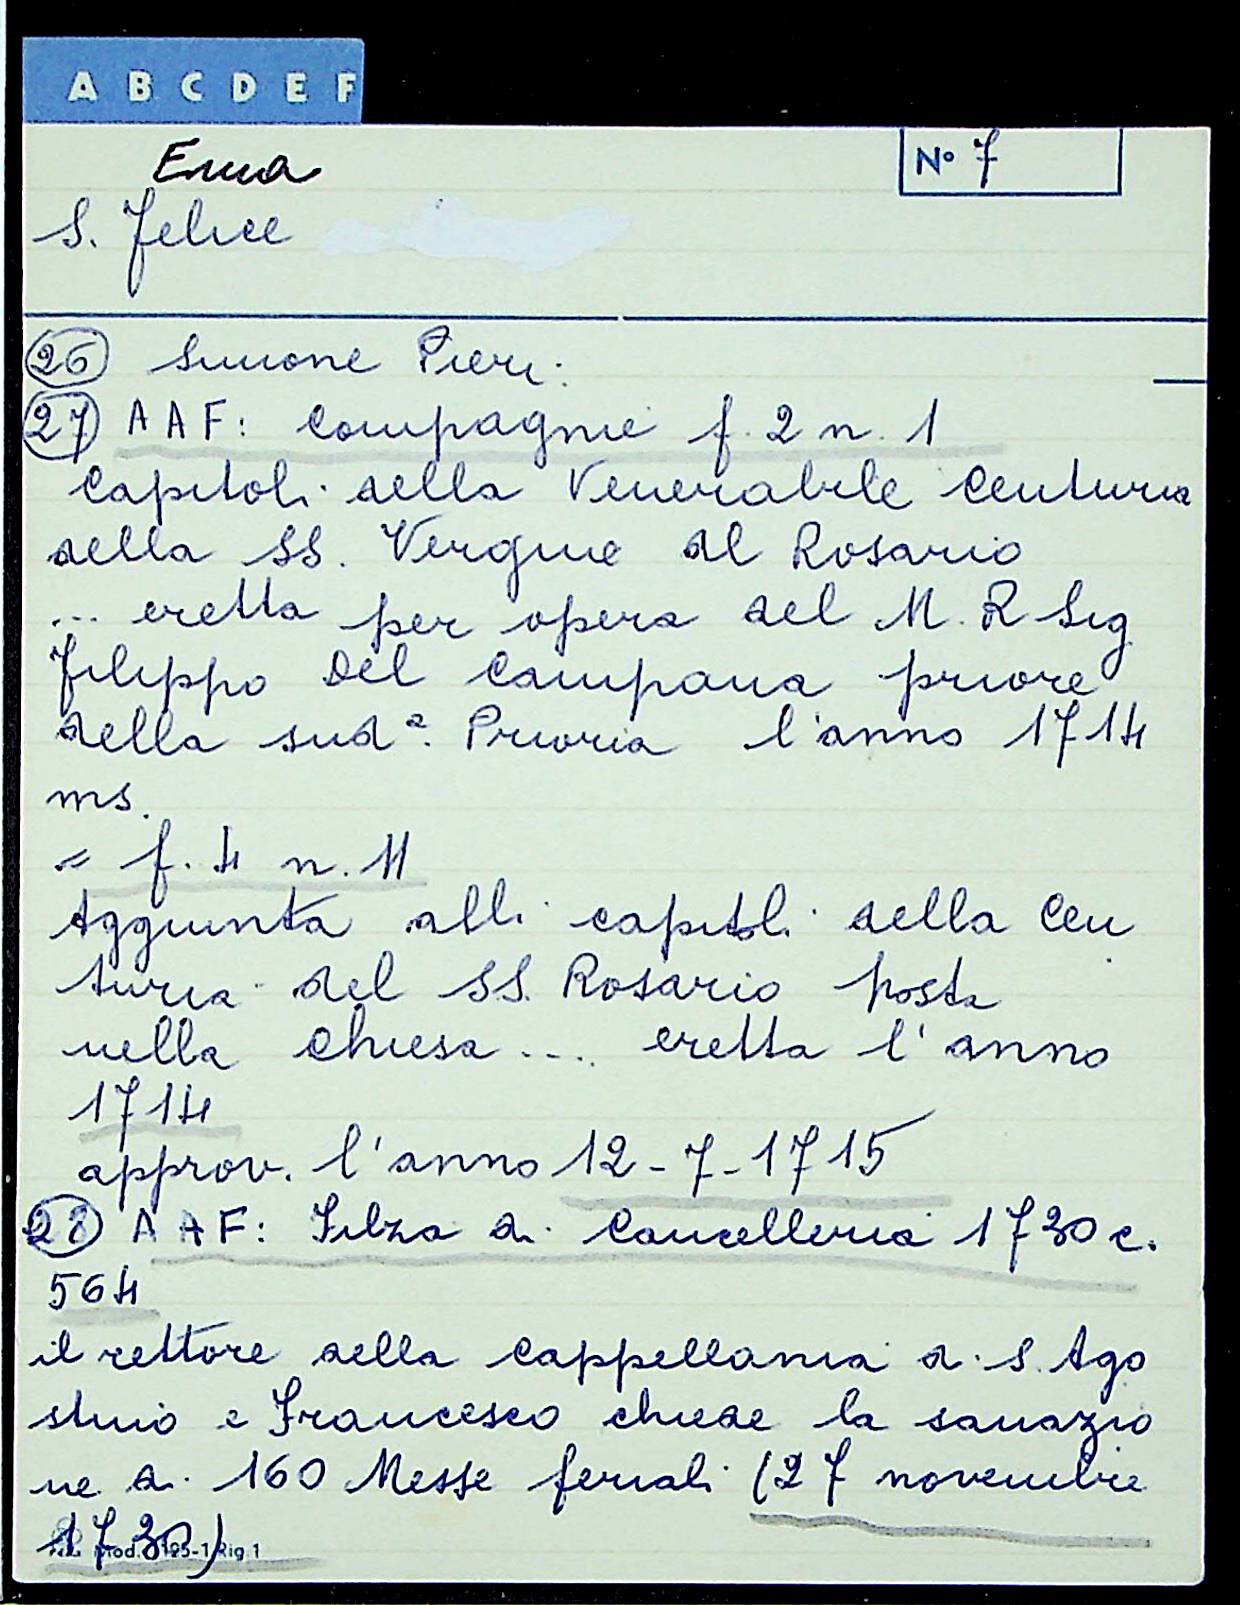 A B C D E F
Ema
N° 7
S. Felice
26 Simone Pieri.
27 AAF: Compagnie f. 2 n. 1
Capitoli della Venerabile Centuria
della SS. Vergine del Rosario
... eretta per opera del M. R Sig
Filippo Del Campana priore
della sudª. Prioria l'anno 1714
ms.
= f. 4 n. 11
Aggiunta alli capitoli della Cen
turia del SS. Rosario posta
nella chiesa .... eretta l'anno
1714
approv. l'anno 12-7-1715
28 AAF: Filza di Cancelleria 1730 c.
564
il rettore della cappellania di S. Ago
stino e Francesco chiede la sanazio
ne di 160 Messe feriali (27 novembre
1730)